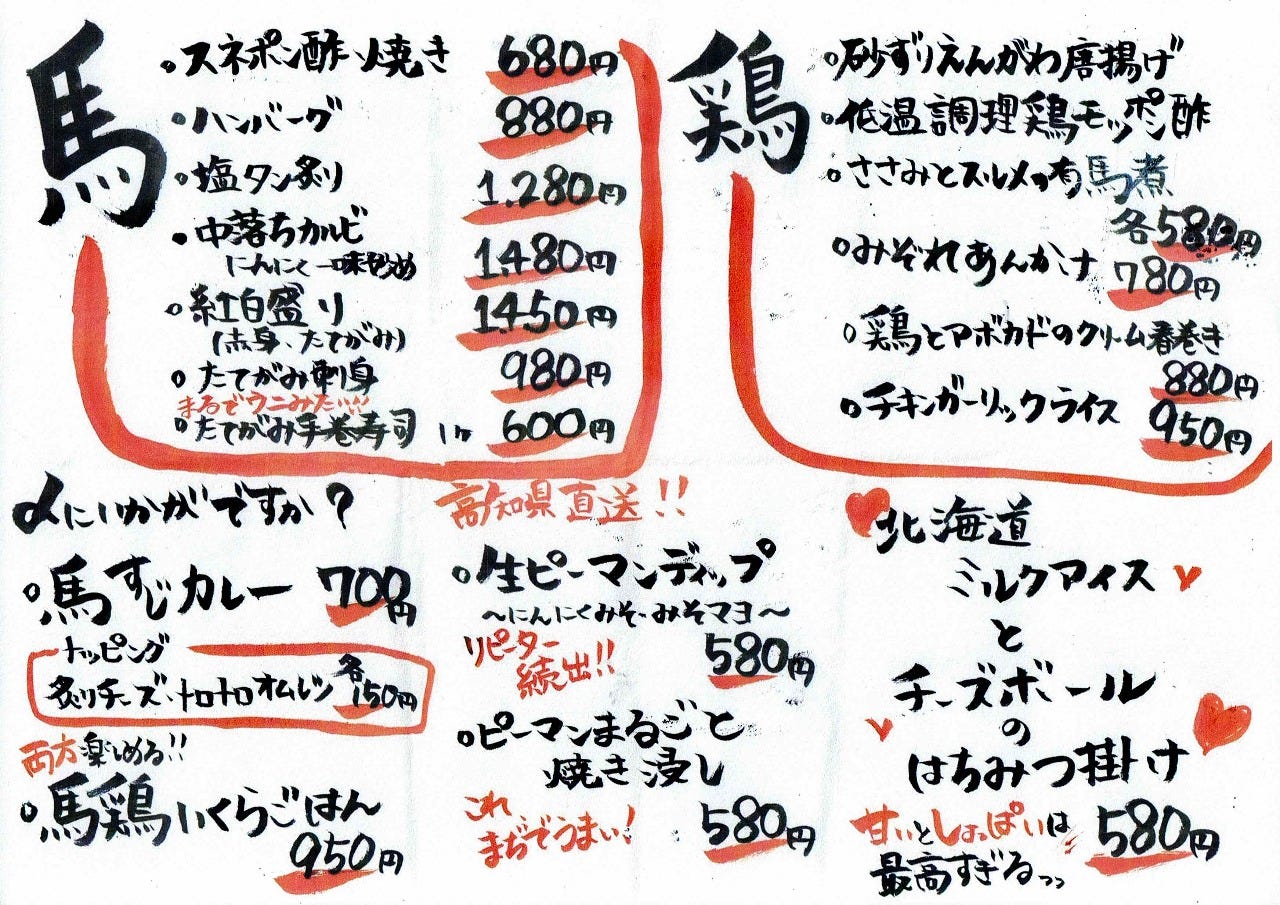 馬
・スネポン酢焼き 680円
・ハンバーグ 880円
・塩タン炙り 1.280円
・中落ちカルビ
にんにく一味炒め 1.480円
・紅白盛り 1.450円
(赤身、たてがみ)
・たてがみ刺身 980円
まるでウニみたい!!
・たてがみ手巻寿司 1ヶ 600円
鶏
・砂ずりえんがわ唐揚げ
・低温調理鶏モッポン酢
・ささみとスルメの有馬煮
各580円
・みぞれあんかけ 780円
・鶏とアボカドのクリーム春巻き
880円
・チキンガーリックライス 950円
〆にいかがですか?
・馬すじカレー 700円
トッピング
炙りチーズ・トロトロオムレツ 各150円
両方楽しめる!!
・馬鶏いくらごはん
950円
高知県直送!!
・生ピーマンディップ
〜にんにくみそ・みそマヨ〜
リピーター
続出!! 580円
・ピーマンまるごと
焼き浸し
これ
まぢでうまい! 580円
北海道
ミルクアイス
と
チーズボール
の
はちみつ掛け
甘いとしょっぱいは
最高すぎるっっ 580円